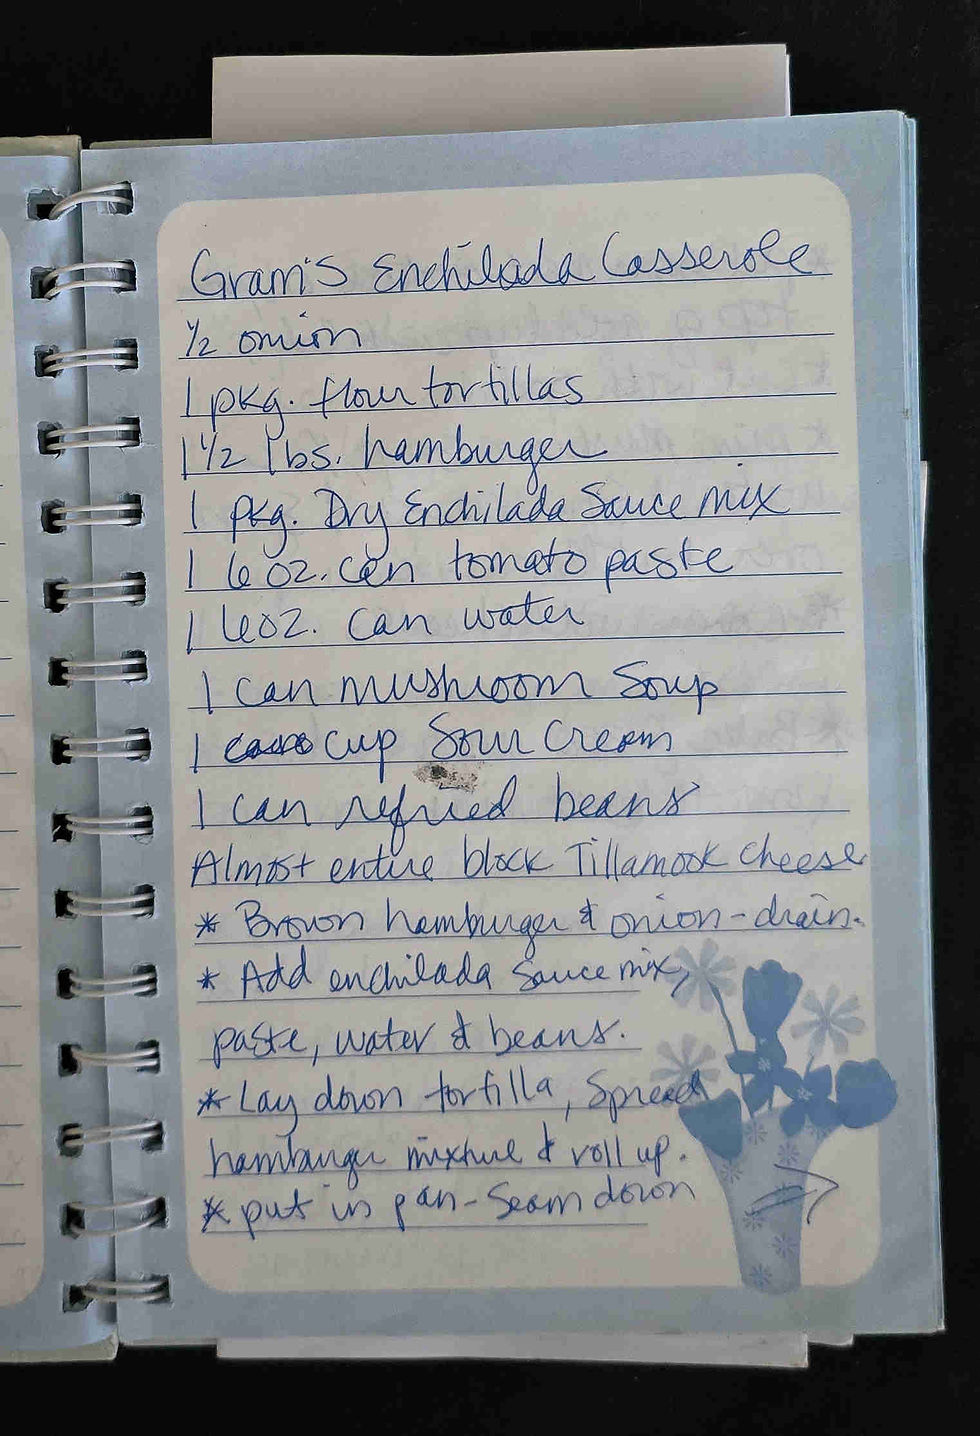 Gram's Enchilada Casserole
½ onion
1 pkg. flour tortillas
1 ½ lbs. hamburger
1 pkg. Dry Enchilada Sauce mix
1 6 oz. can tomato paste
1 6oz. can water
1 can mushroom Soup
1 cup Sour Cream
1 can refried beans
Almost entire block Tillamook cheese
* Brown hamburger & onion - drain.
* Add enchilada Sauce mix,
paste, water & beans.
* Lay down tortilla, Spread
hamburger mixture & roll up.
* put in pan - Seam down